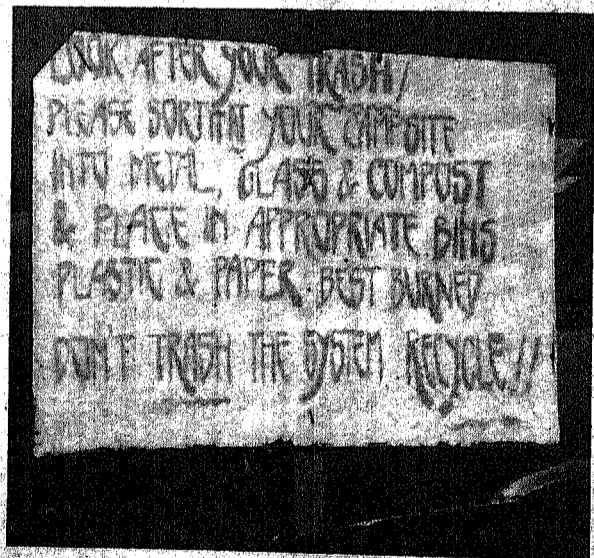 LOOK AFTER YOUR TRASH!
PLEASE SORT IT AT YOUR CAMPSITE
INTO METAL, GLASS & COMPOST
& PLACE IN APPROPRIATE BINS
PLASTIC & PAPER BEST BURNED
DON'T TRASH THE SYSTEM RECYCLE!!